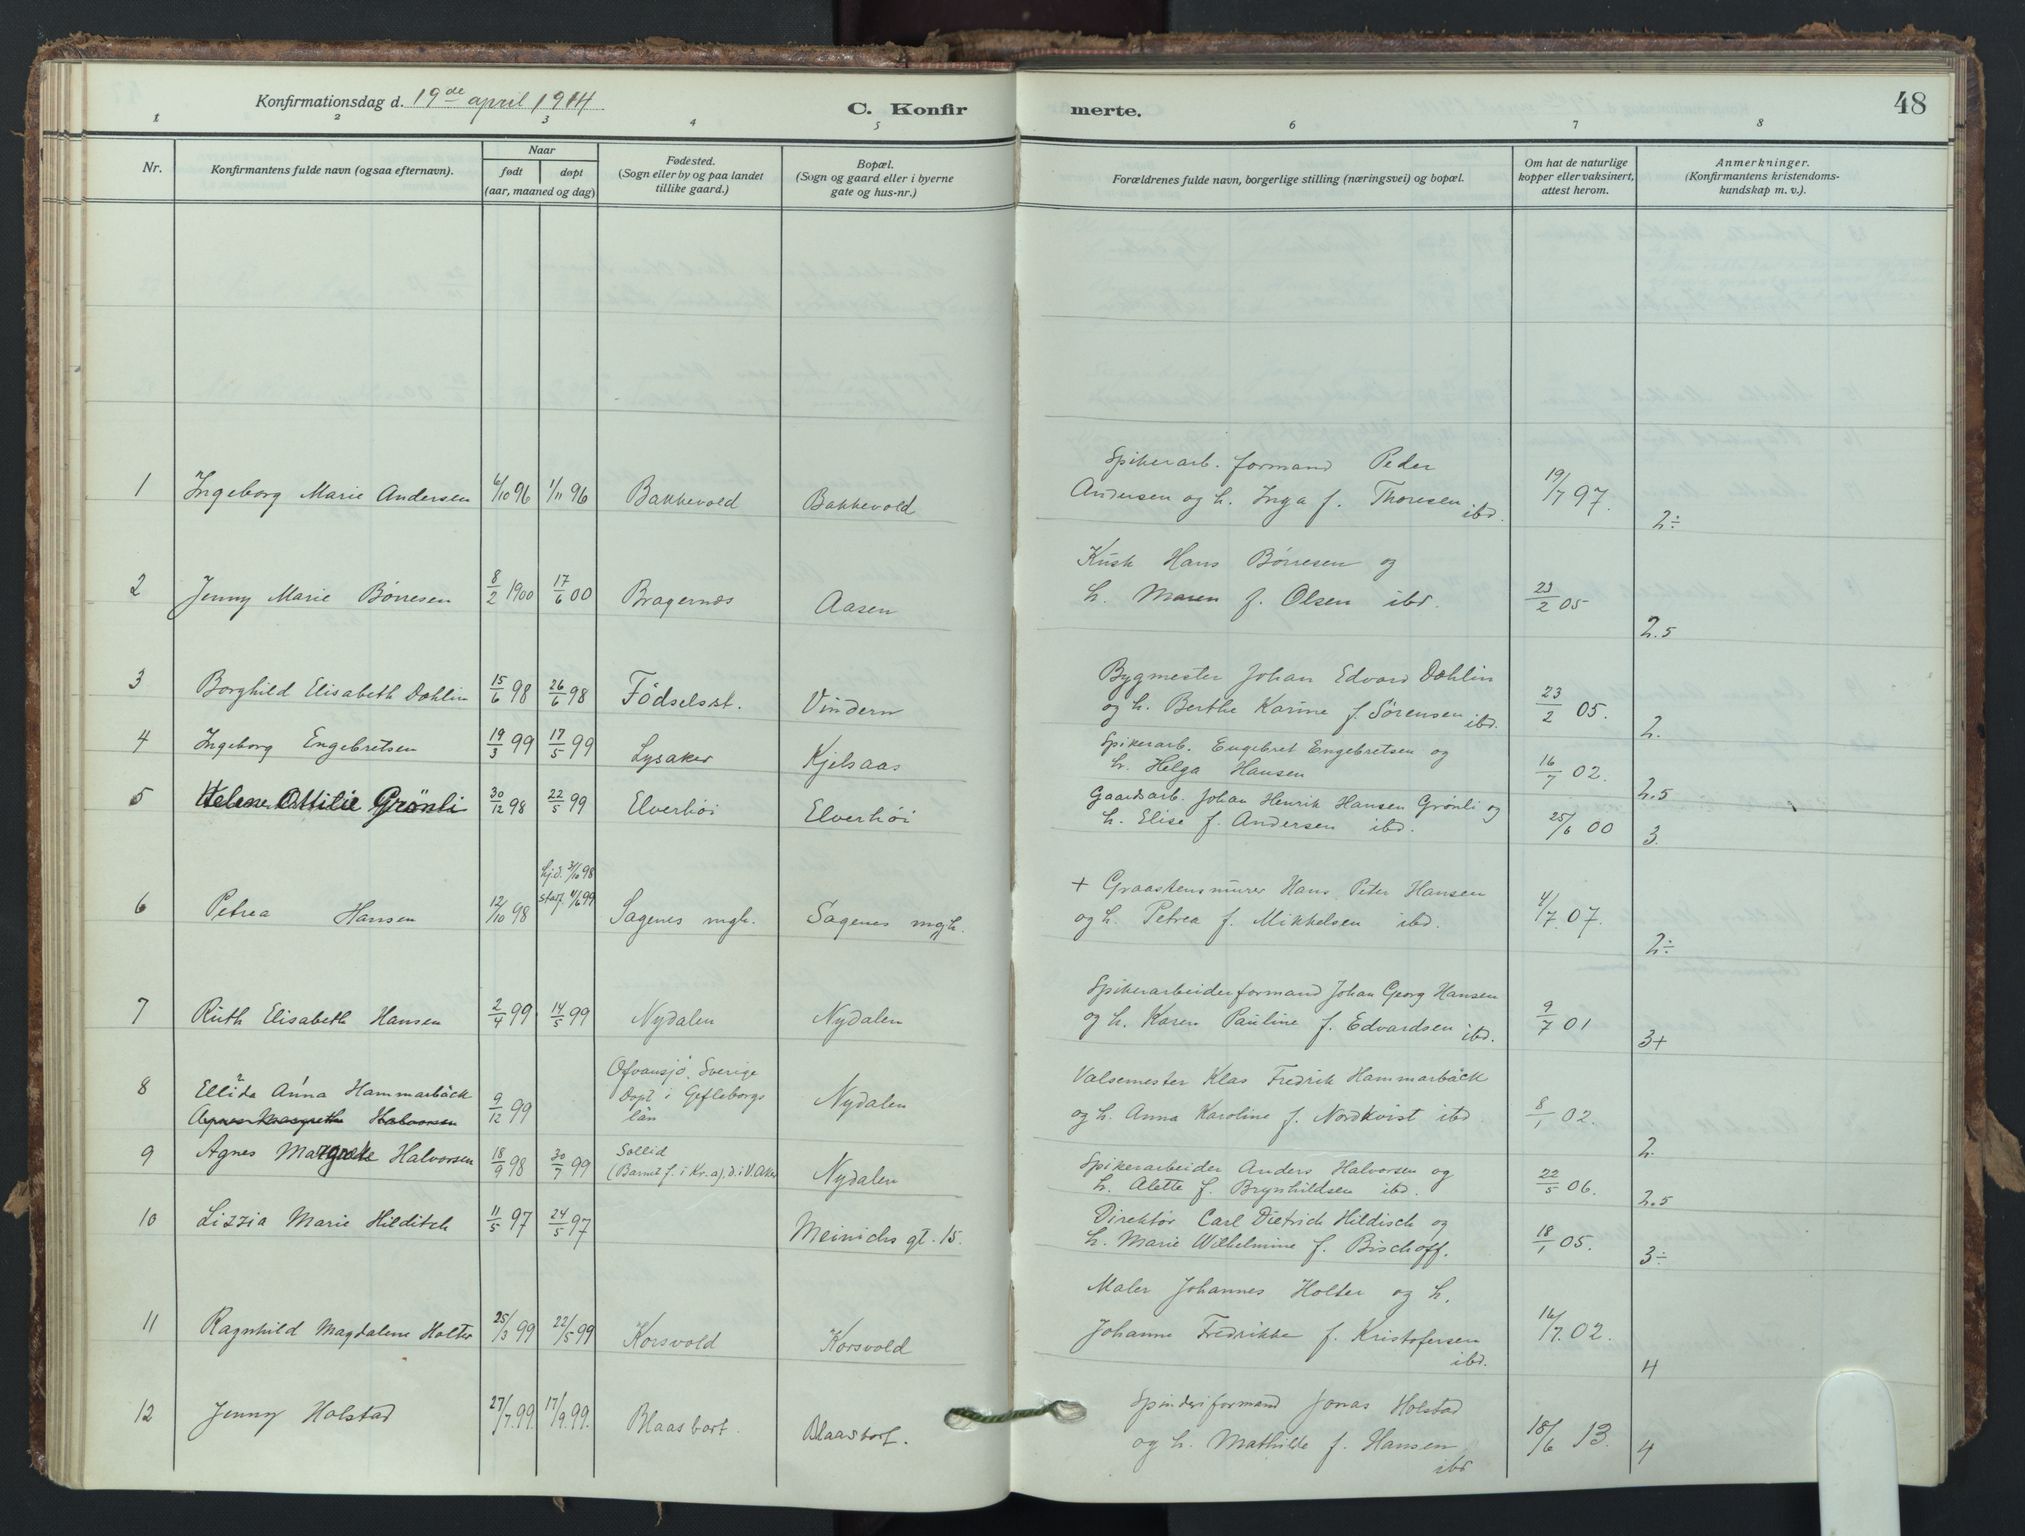 Konfirmationsdag d. 19de april 1914
C. Konfir
merte.
48
1 2 3 4 5 6 7 8
Nr.
Konfirmantens fulde navn (ogsaa efternavn).
Naar
født
døpt
(aar, maaned og dag)
Fødested.
(Sogn eller by og paa landet
tillike gaard.)
Bopæl.
(Sogn og gaard eller i byerne
gate og hus-nr.)
Forældrenes fulde navn, borgerlige stilling (næringsvei) og bopæl.
Om hat de naturlige
kopper eller vaksinert,
attest herom.
Anmerkninger.
(Konfirmantens kristendoms-
kundskap m. v.).
1 Ingeborg Marie Andersen 6/10 96 1/11 96 Bakkevold Bakkevold
Spikerarb. formand Peder
Andersen og h. Inga f. Thoresen ibd. 19/7 97. 2÷
2 Jenny Marie Børresen 8/2 1900 17/6 00 Bragernæs Aasen
Kusk Hans Børresen og
h. Maren f. Olsen ibd. 23/2 05 2.5
3 Borghild Elisabeth Dæhlin 15/6 98 26/6 98 Födselsst. Vindern
Bygmester Johan Edvard Dæhlin
og h. Berthe Karine f. Sørensen ibd. 23/2 05. 2.
4 Ingeborg Engebretsen 19/3 99 17/5 99 Lysaker Kjelsaas
Spikerarb. Engebret Engebretsen og
h. Helga Hansen 16/7 02. 2.5
5 Helene Ottilie Grönli 30/12 98 22/5 99 Elverhöi Elverhöi
Gaardsarb. Johan Henrik Hansen Grönli og
h. Elise f. Andersen ibd. 25/6 00 3.
hj.d. 3/10 98
6 Petrea Hansen 12/10 98 stadf. 4/6 99 Sagenes mgh. Sagenes mgh.
+ Graastensmurer Hans Peter Hansen
og h. Petrea f. Mikkelsen ibd. 4/7. 07. 2÷
7 Ruth Elisabeth Hansen 2/4 99 14/5 99 Nydalen Nydalen
Spikerarbeiderformand Johan Georg Hansen
og h. Karen Pauline f. Edvardsen ibd. 9/7 01 3+
8 Ellida Anna Hammarbäck 9/12 99
Ofvansjö, Sverige
Döpt i Gefleborgs
län
Nydalen
Valsemester Klas Fredrik Hammarbäck
og h. Anna Karoline f. Nordkvist ibd 8/1 02. 2.
Agnes Margrethe Halvorsen
9 Agnes Margrete Halvorsen 18/9 98 30/7 99
Sollid
(Barnet f. i Kr.a), d. i V. Aker
Nydalen
Spikerarbeider Anders Halvorsen og
h. Alette f. Brynhildsen ibd. 22/5 06. 2.5
10 Lizzia Marie Hilditch 11/5 97 24/5 97 Meinichs gt. 15.
Direktör Carl Dietrich Hildisch og
h. Marie Wilhelmine f. Bischoff. 18/1 05. 3÷
11 Ragnhild Magdalene Holter 25/3 99 22/5 99 Korsvold Korsvold
Maler Johannes Holter og h.
Johanne Fredrikke f. Kristofersen
ibd. 16/7. 02. 4
12 Jenny Holstad 27/7. 99. 17/9. 99. Blaasbort. Blaasbort.
Spinderiformand Jonas Holstad
og h. Mathilde f. Hansen
ibd 18/6 13. 4